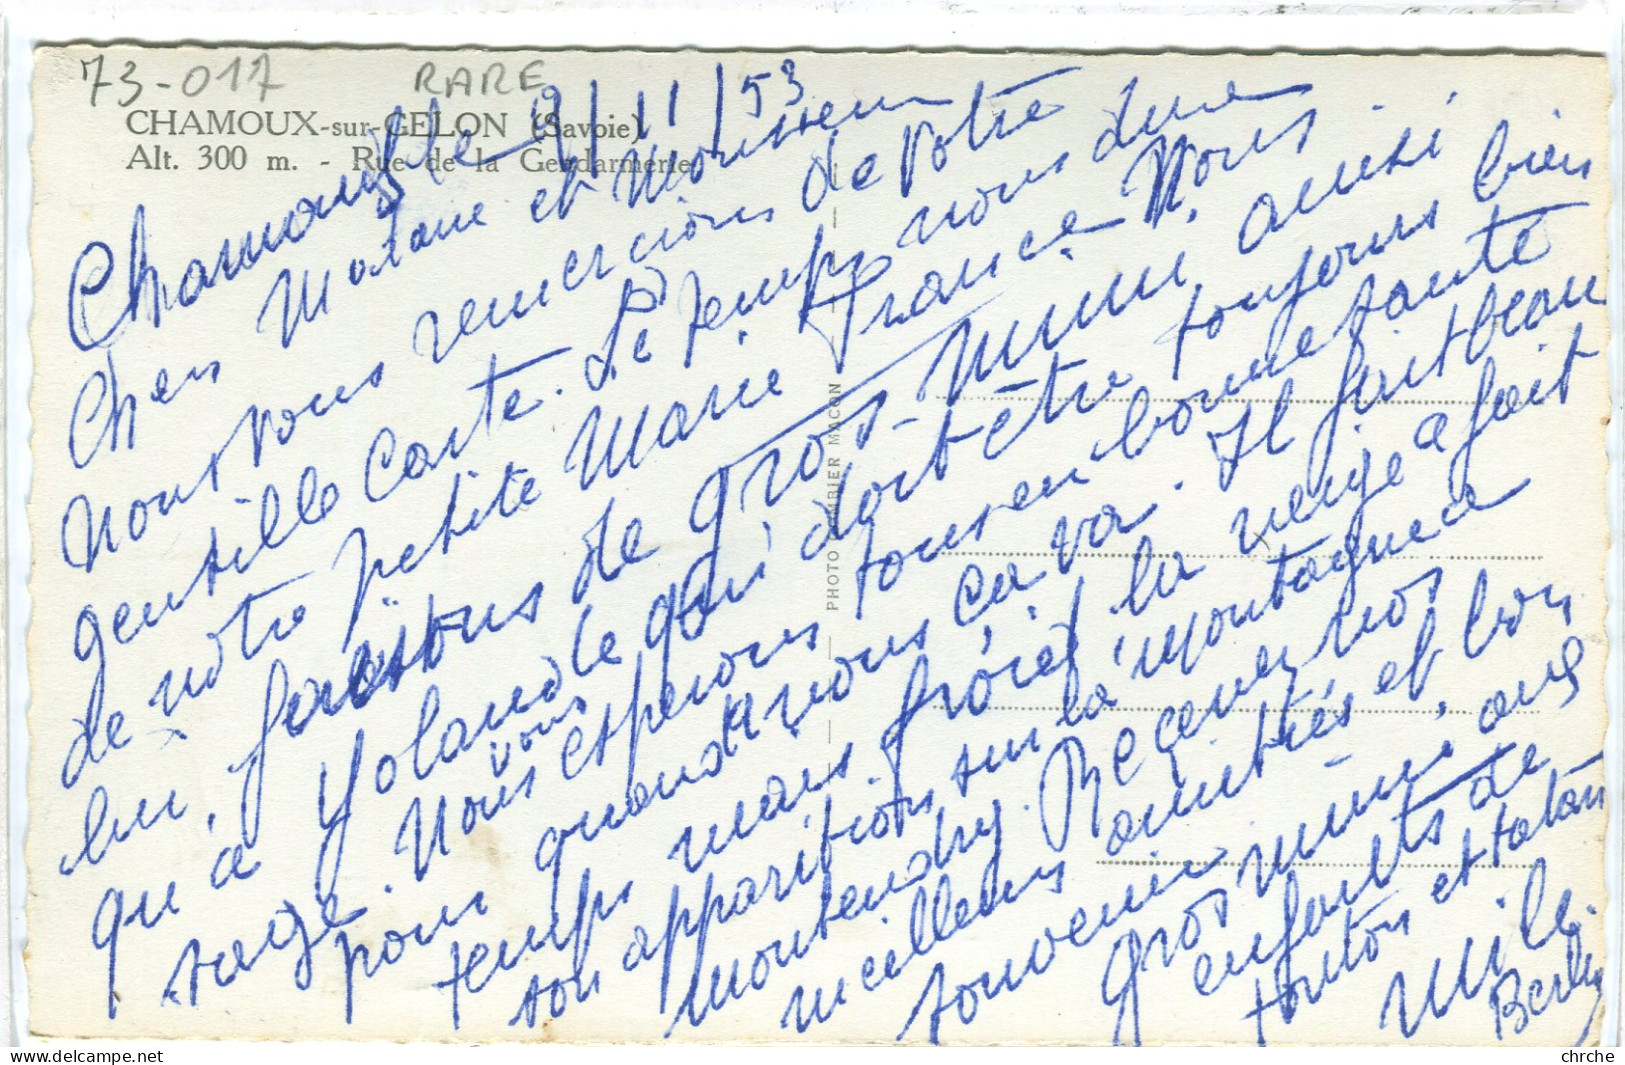 73-017 RARE
CHAMOUX-sur-GELON (Savoie)
Alt. 300 m. - Rue de la Gendarmerie
PHOTO MACON
Chamoux le 9/11/53
Chers Madame et Monsieur
Nous vous remercions de votre
gentille Carte. Le temps nous dure
de notre petite Marie France. Nous
lui faisons de gros mimi ainsi
qu'à Yolande qui doit être toujours bien
sage. Nous vous espérons tous en bonne santé
pour quand à nous ca va. Il fait beau
temps mais froid la neige a fait
son apparition sur la montagne a
montendry. Recever nos
meilleurs amitiés et bon
souvenir
gros mimi aux
enfants de
tonton et tatan
Mili